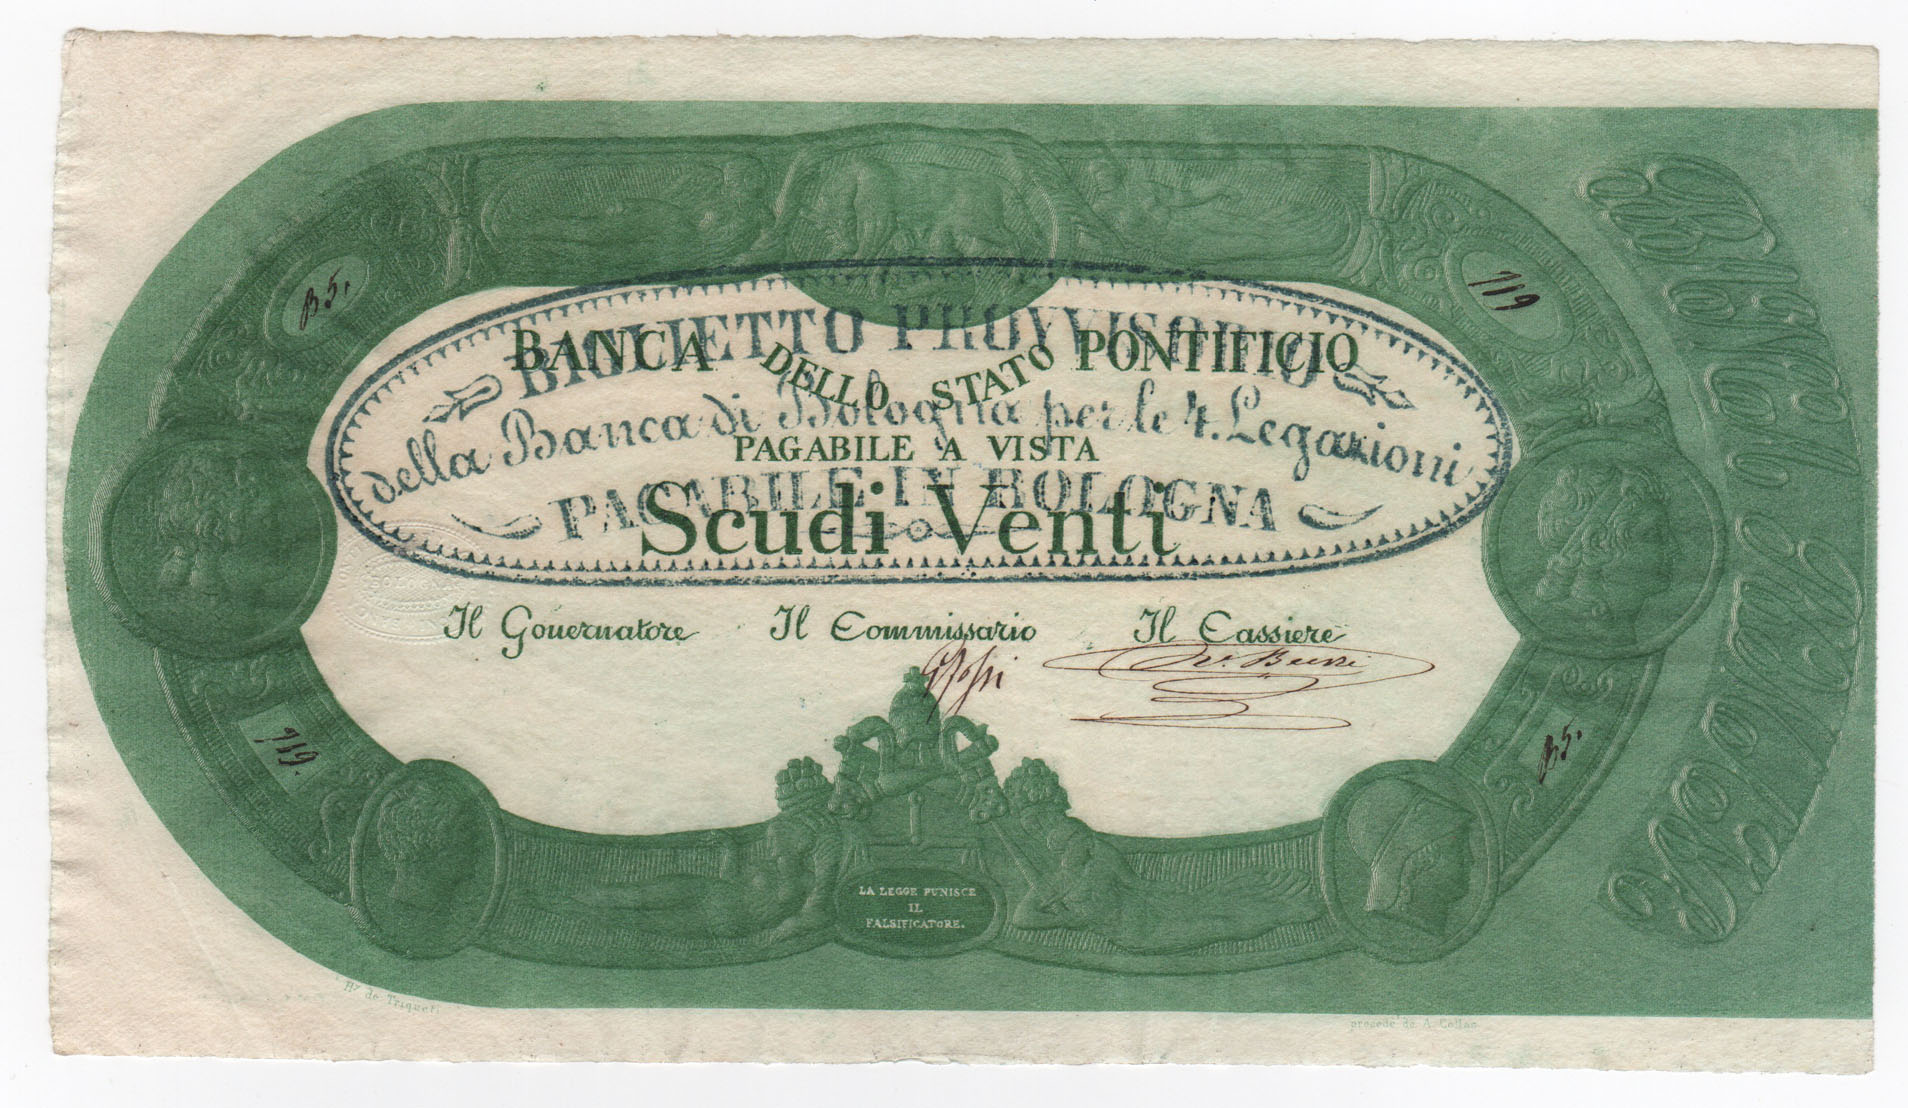 B5.
719
BIGLIETTO PROVVISORIO
BANCA DELLO STATO PONTIFICIO
della Banca di Bologna per le 4. Legazioni
PAGABILE A VISTA
PAGABILE IN BOLOGNA
Scudi Venti
BOLOGNA
Il Governatore Il Commissario Il Cassiere
719.
B5.
LA LEGGE PUNISCE
IL
FALSIFICATORE.
Hy de Triqueti
procédé de A. Collas